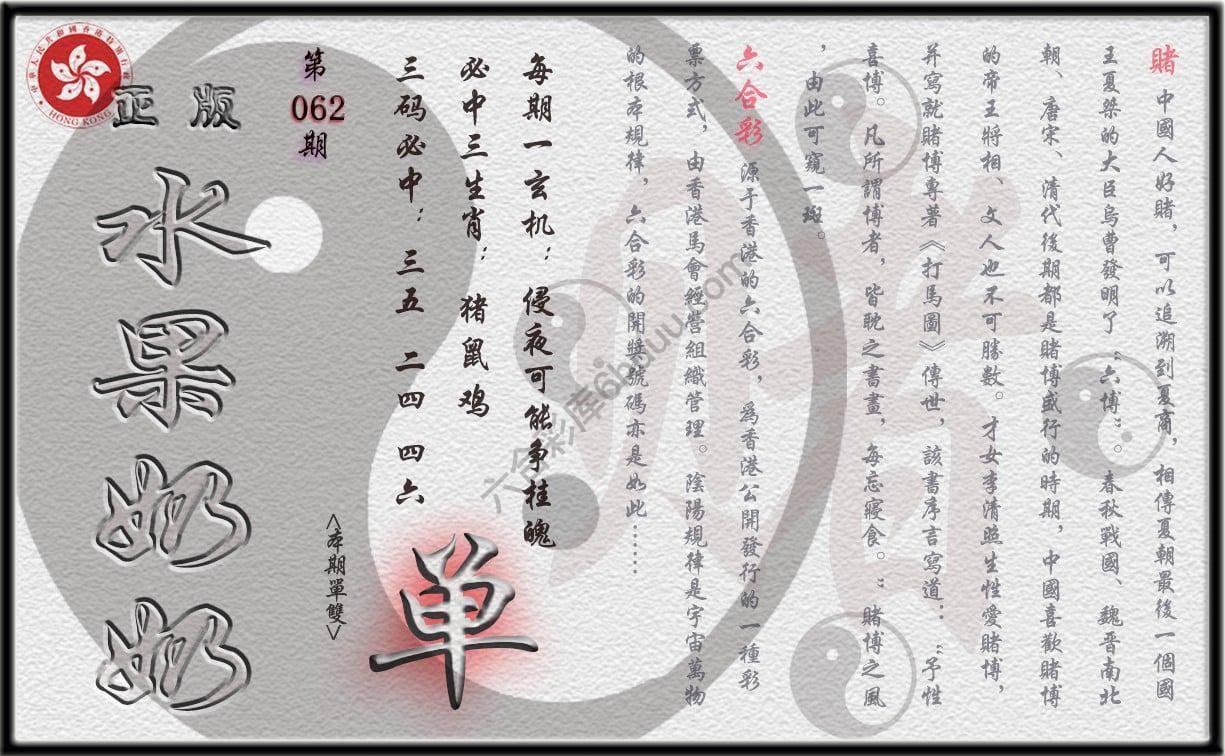 賭 中國人好賭，可以追溯到夏商，相傳夏朝最後一個國
王夏桀的大臣烏曹發明了“六博”。春秋戰國、魏晉南北
朝、唐宋、清代後期都是賭博盛行的時期，中國喜歡賭博
的帝王將相、文人也不可勝數。才女李清照生性愛賭博，
并寫就賭博專著《打馬圖》傳世，該書序言寫道：“予性
喜博。凡所謂博者，皆耽之書畫，每忘寢食。”賭博之風
，由此可窺一斑。
六合彩 源于香港的六合彩，爲香港公開發行的一種彩
票方式，由香港馬會經營組織管理。陰陽規律是宇宙萬物
的根本規律，六合彩的開獎號碼亦是如此……
每期一玄机：侵夜可能争桂魄
必中三生肖：猪鼠鸡
三码必中：三五 二四 四六
单
<本期單雙>
第
062
期
正版
水果奶奶
中華人民共和國香港特別行政區
HONG KONG
六合彩库6huuu.com